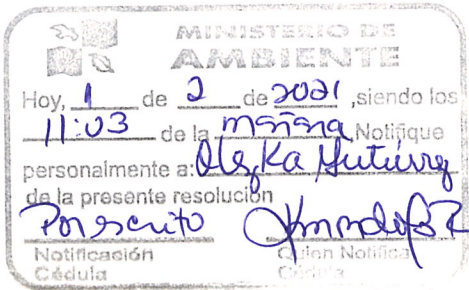 MINISTERIO DE
AMBIENTE
Hoy, 1 de 2 de 2021, siendo los
11:03 de la mañana Notifique
personalmente a: Gutiérrez
de la presente resolución
Por escrito
Notificación Quien Notifica
Cédula Cédula